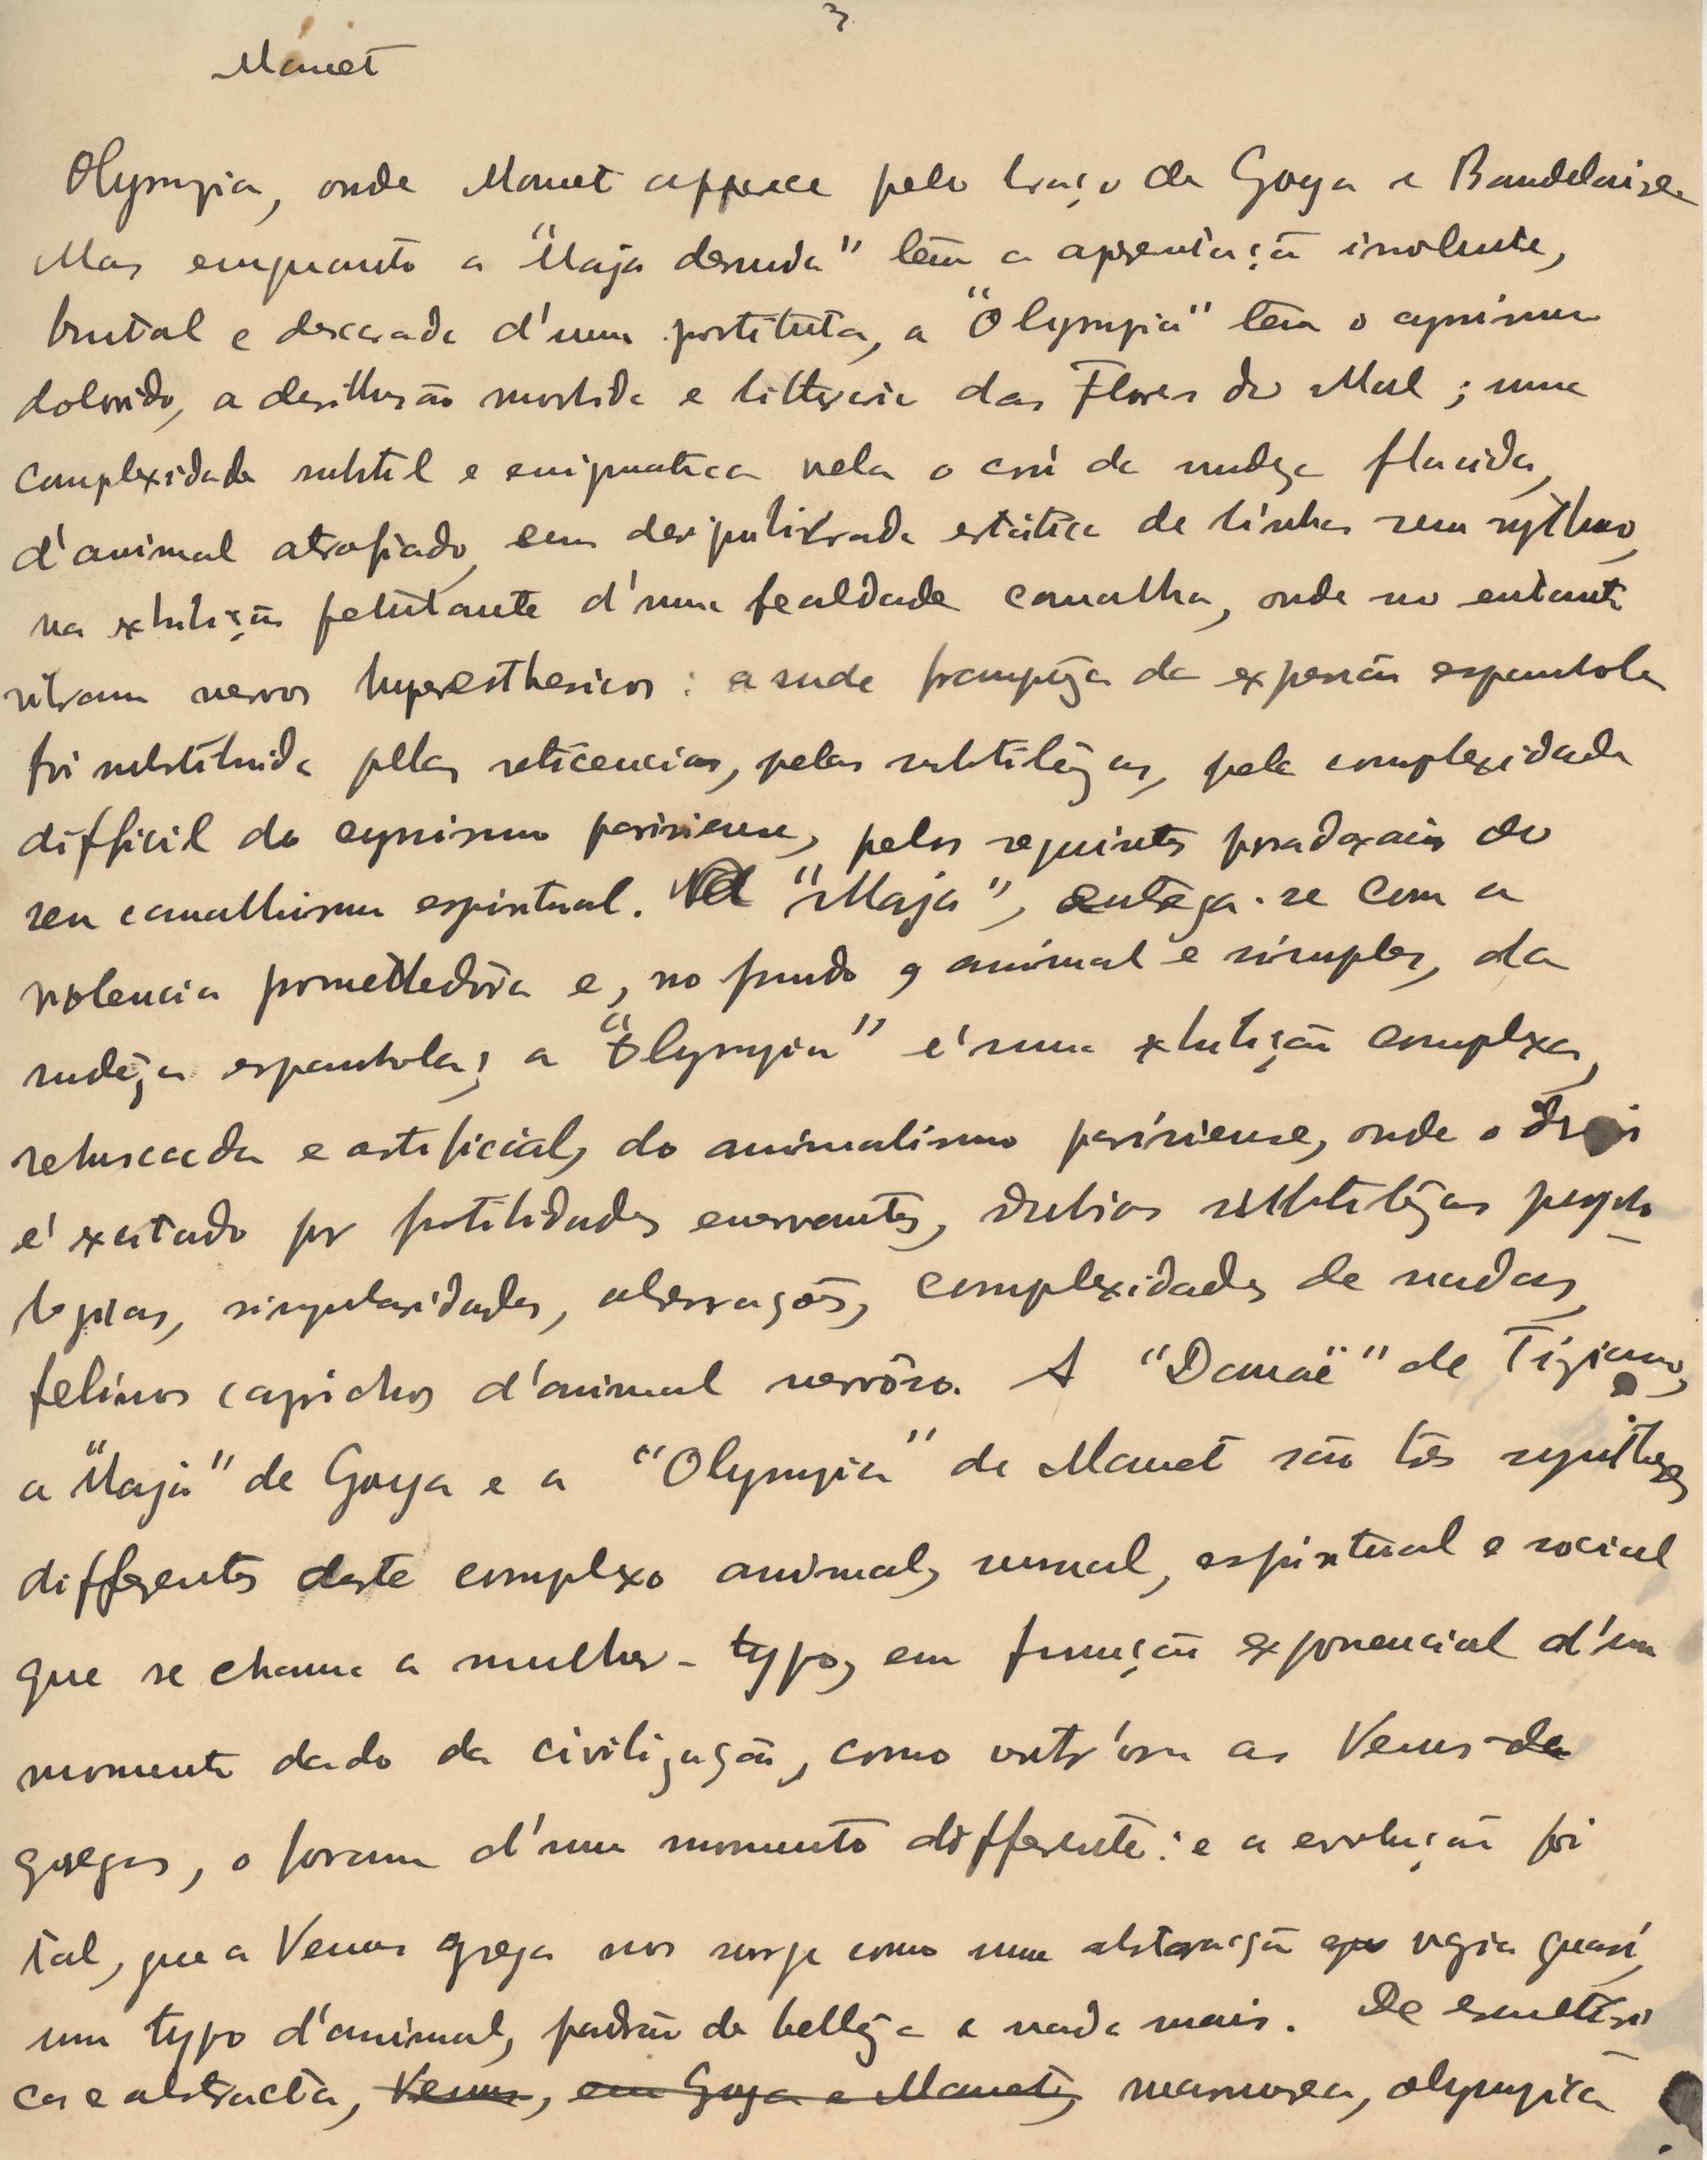 3
Manet
Olympia, onde Manet apparece pelo braço de Goya e Baudelaire
Mas emquanto a "Maja desnuda" tem a apresentação insolente,
brutal e descarada d'uma prostituta, a "Olympia" tem o cynismo
dolorido, a desillusão morbida e litteraria das Flores do Mal; uma
complexidade subtil e enigmatica vela o crú da nudeza flacida,
d'animal atrofiado, sem desiquilibrada estática de linhas sem rythmo,
na exhibição petulante d'uma fealdade canalha, onde no entanto
vibram nervos hyperesthesicos: a rude franqueza da expressão espanhola
foi substituida pellas reticencias, pelas subtilezas, pela complexidade
difficil do cynismo parisiense, pelos requintes paradoxais do
seu canalhismo espiritual. A "Maja", entrega-se com a
violencia promettedôra e, no fundo, animal e simples, da
nudeza espanhola; a "Olympia" é uma exhibição complexa,
rebuscada e artificial, do animalismo parisiense, onde o
é excitado por futilidades enervantes, dubias subtilezas psycho-
logicas, singularidades, aberrações, complexidades de nadas,
felinos caprichos d'animal nervôso. A "Danaë" de Tiziano,
a "Maja" de Goya e a "Olympia" de Manet são três syntheses
differentes deste complexo animal, sensual, espiritual e social
que se chama a mulher-typo, em funcção exponencial d'um
momento dado da civilização, como outr'ora as Venus da
gregas, o foram d'um momento differente: e a evolução foi
tal, que a Venus grega nos surge como uma abstracção vazia quasi,
um typo d'animal, padrão de belleza e nada mais. De escultori
ca e abstracta, Venus, em Goya e Manet, marmorea, olympica